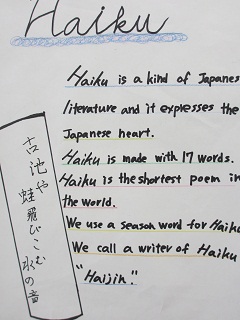 Haiku
Haiku is a kind of Japanes
literature and it expresses the
Japanese heart.
Haiku is made with 17 words.
Haiku is the shortest poem in
the world.
We use a season word for Haiku
We call a writer of Haiku
"Haijin."
古池や
蛙飛びこむ
水の音